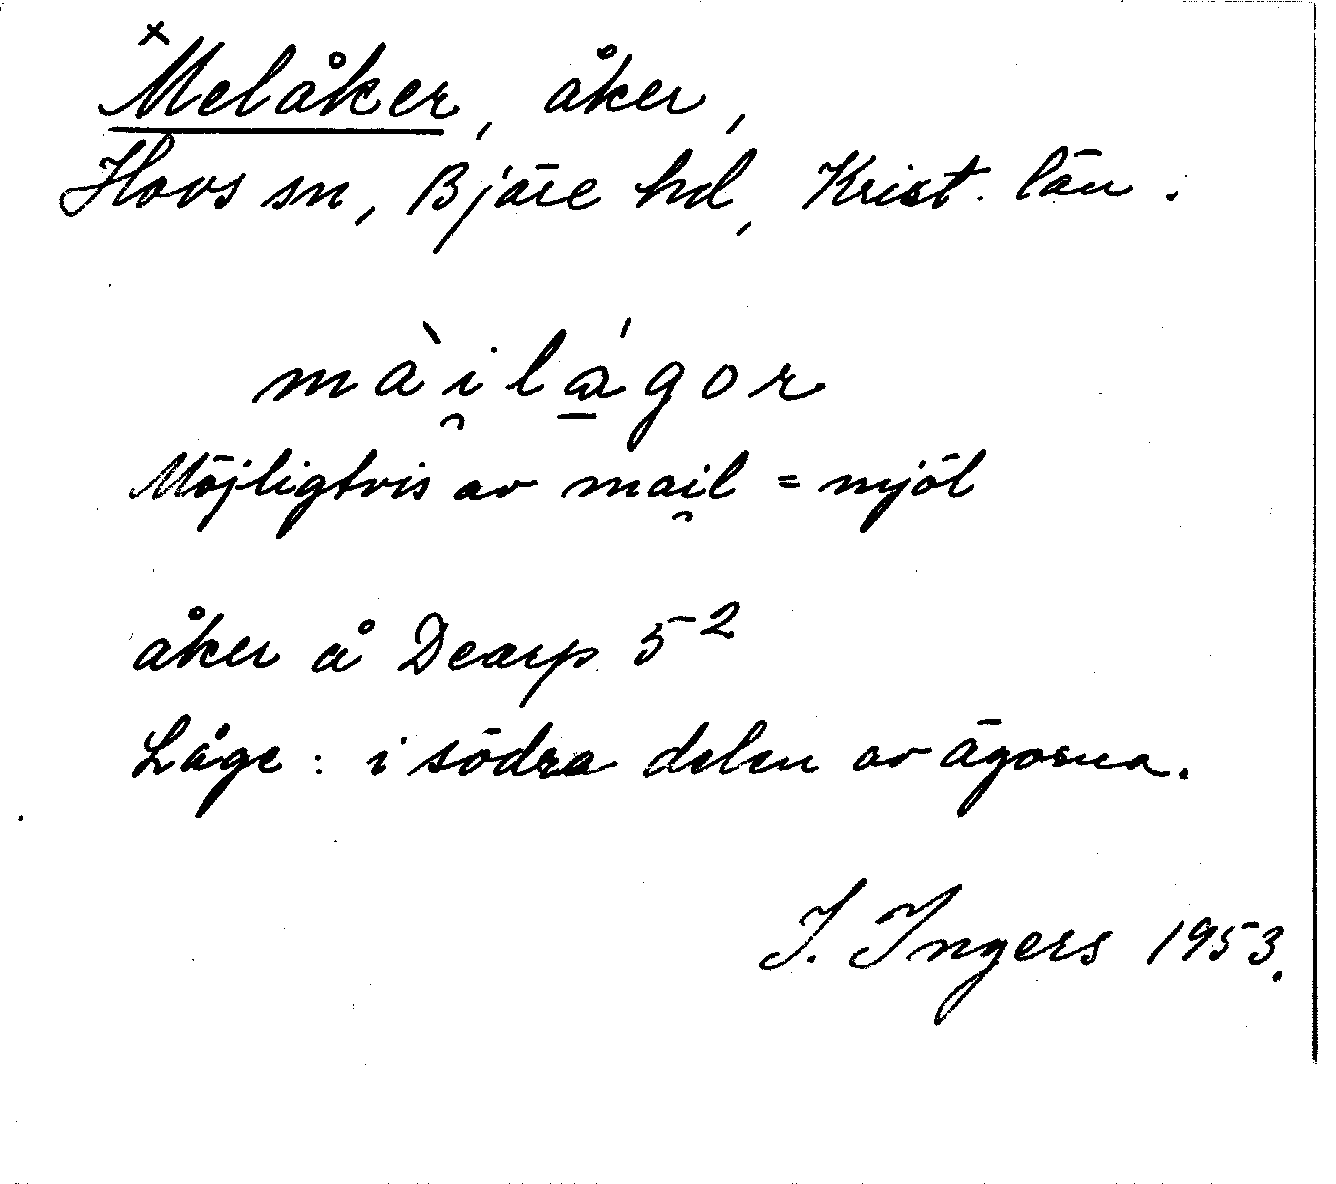 × Melåker, åker,
Hovs sn, Bjäre hd, Krist. län.
mài̯lá̱gor
Möjligtvis av mai̯l = mjöl
åker å Dearp 5²
Läge: i södra delen av ägorna.
I. Ingers 1953.